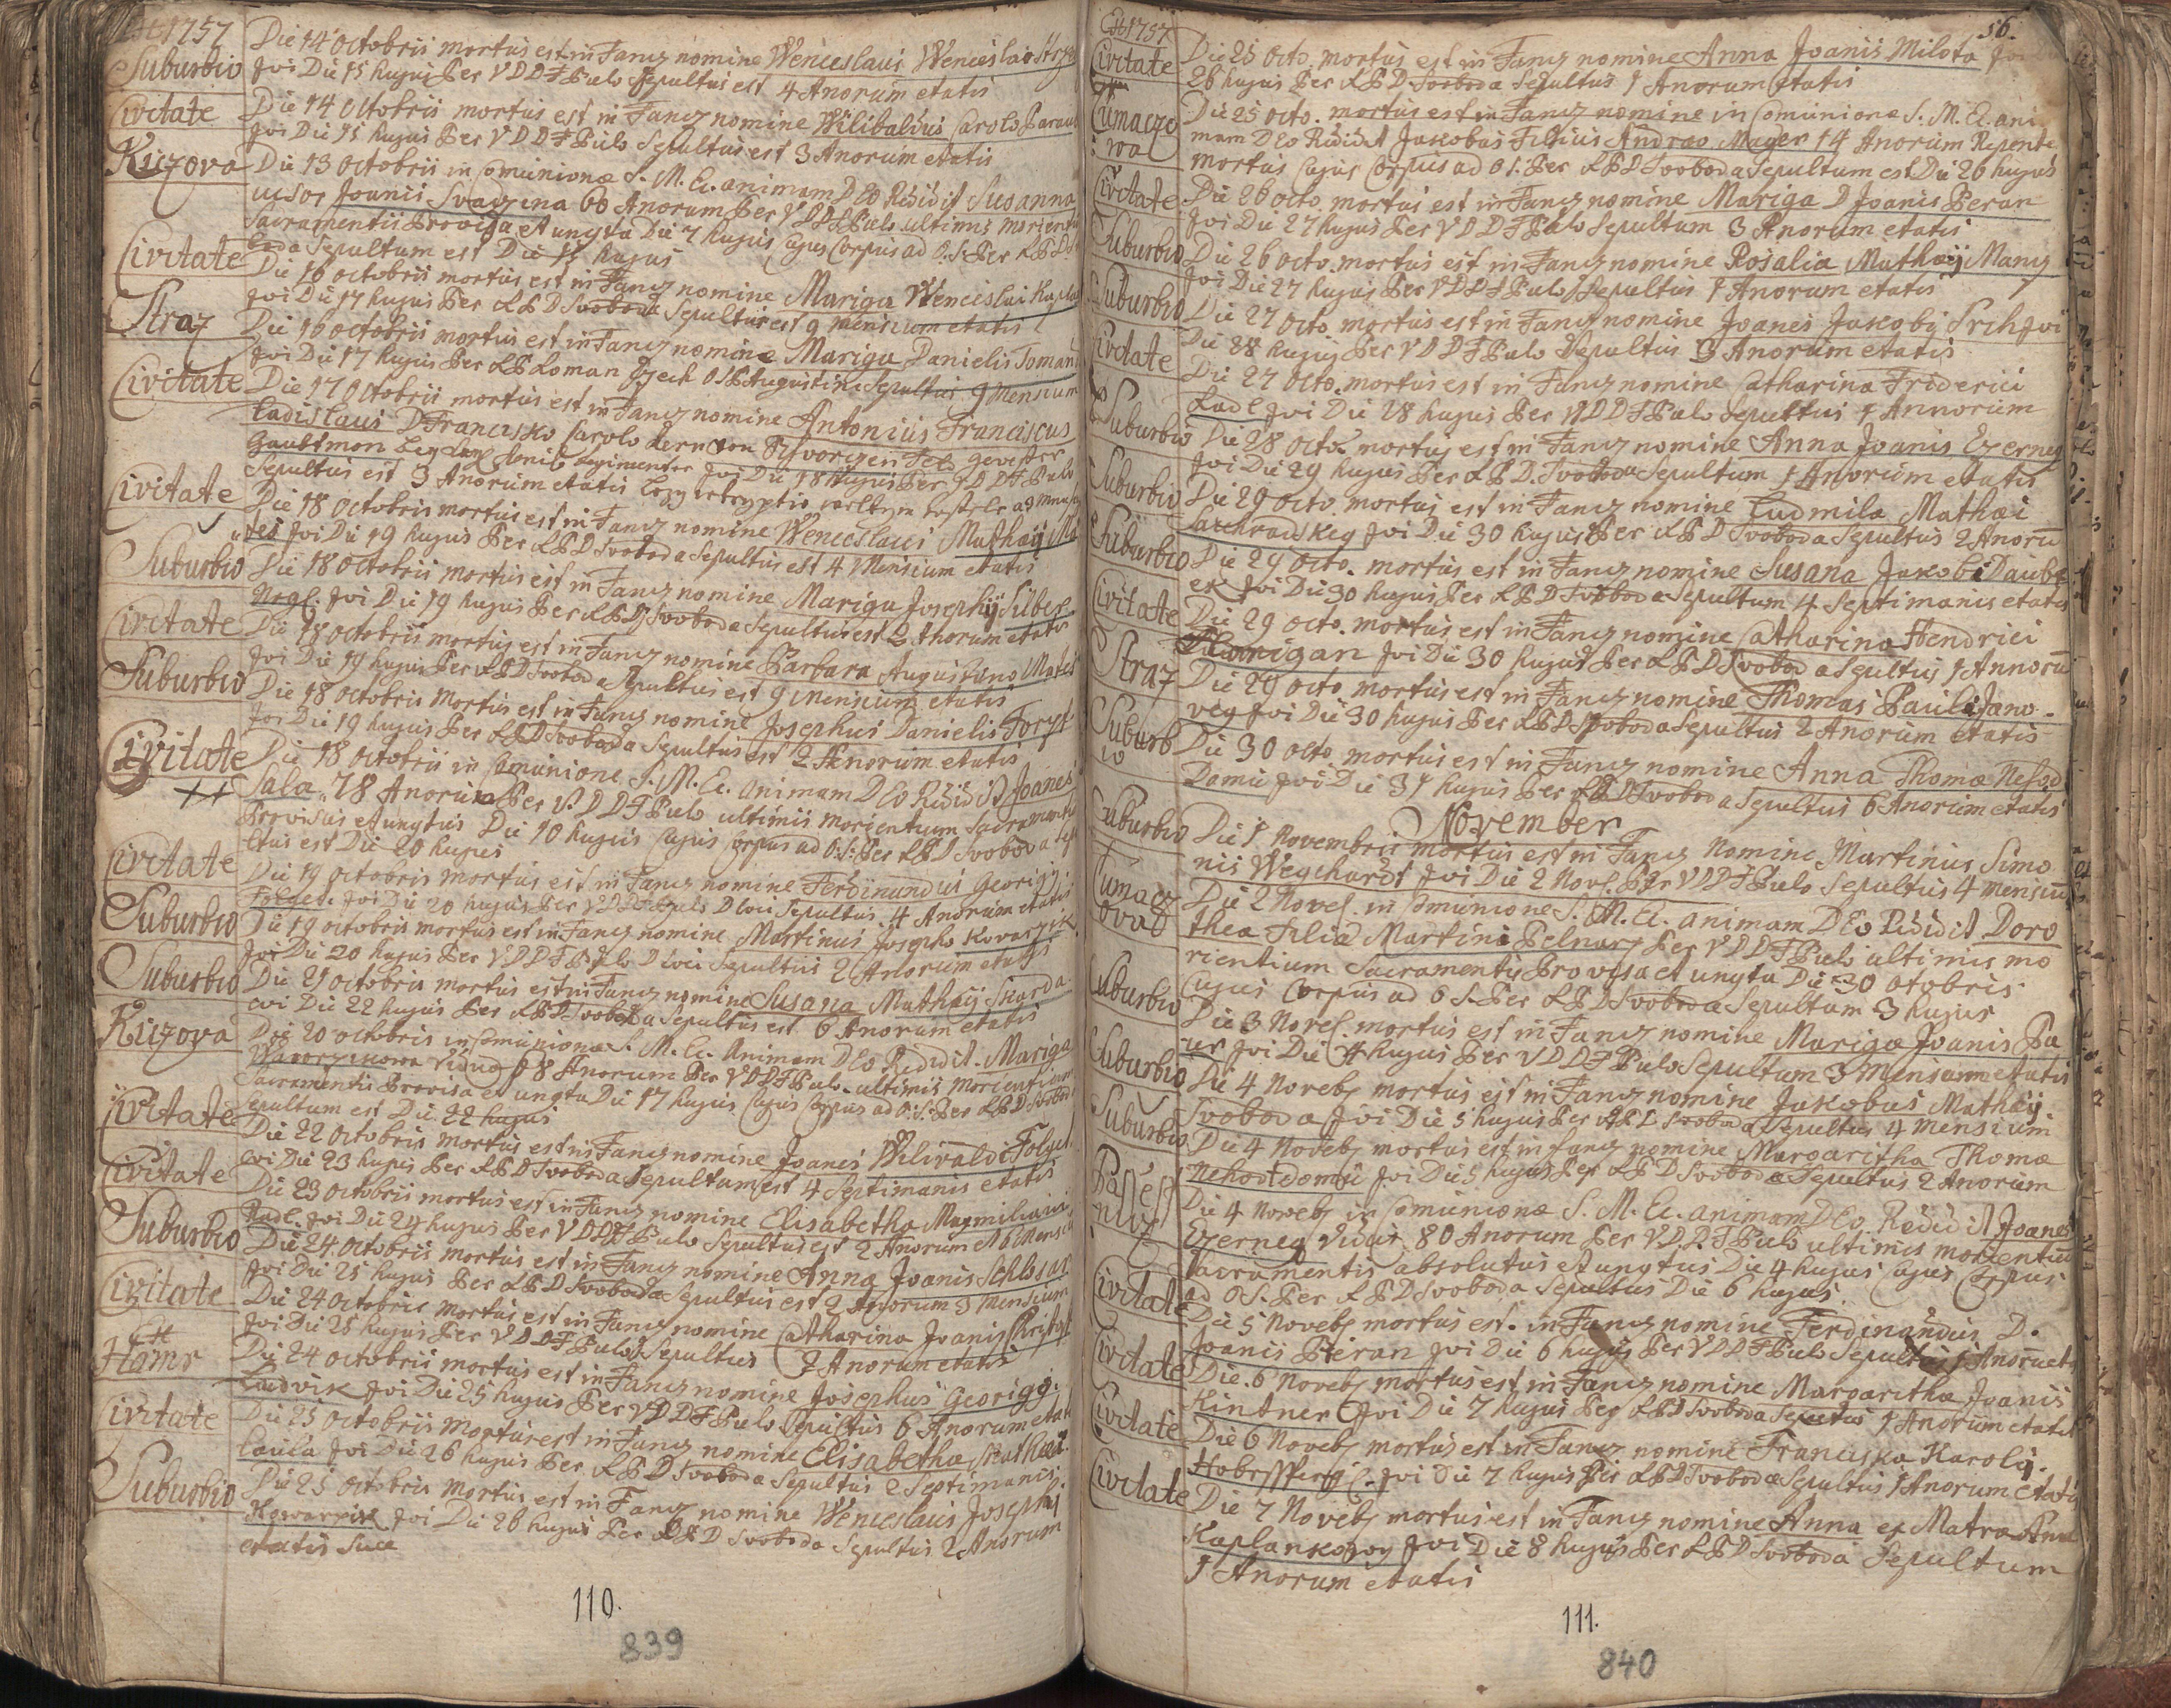 1757
Suburbio
Die 14 Octobris mortus est in Fancz nomine Wenceslaus Wenceslao
Jvi Die 15 hujus Per VDDFPulo Sepultus est 4 Anorum etatis
Civitate
Die 14 Octobris mortus est in Fancz nomine Wilibaldus Carolo
Jvi Die 15 hujus Per VDDFPulo Sepultus est 3 Anorum etatis
Kizova
Die 13 Octobris in Comunione S. M. E. animam DEo Rididit Susanna
ucsor Joanis Svaczina 60 Anorum Per VDDFPulo ultimis
Sacramentis Provisa et ungta Die 7 hujus Cujus Corpus ad O.S. Per
Sepultum est Die 15 hujus
Civitate
Die 16 octobris mortus est in Fancz nomine Mariga Wenceslai
Jvi Die 17 hujus Per LPD Svoboda Sepultus est 9 Mensium etatis
Straz
Die 16 octobris mortus est in Fancz nomine Mariga Danielis
Jvi Die 17 hujus Per LP Roman Czech OSPAugustini Sepultus 9 Mensium
Civitate
Die 17 Octobris mortus est in Fancz nomine Antonius Franciscus
Ladislaus D Francisko Carolo Kern von gevester
Jvi Die 18 hujus Per VDDFPulo
Sepultus est 3 Anorum etatis
Civitate
Die 18 Octobris mortus est in Fancz nomine Wenceslaus Mathaij
Jvi Die 19 hujus Per LPD Svoboda Sepultus est 4 Mensium etatis
Suburbio
Die 18 octobris mortus est in Fancz nomine Mariga Josephij Silber
Nagl. Jvi Die 19 hujus Per LPD Svoboda Sepultus est 2 Anorum etatis
Civitate
Die 18 octobris mortus est in Fancz nomine Barbara Augustino
Jvi Die 19 hujus Per LPD Svoboda Sepultus est 9 Mensium etatis
Suburbio
Die 18 octobris Mortus est in Fancz nomine Josephus Danielis
Jvi Die 19 hujus Per LPD Svoboda Sepultus est 2 Anorum etatis
Civitate
Die 18 octobris in Comunione S. M. E. animam DEo Rididit Joanes
Sala 78 Anorum Per V.DDFPulo ultimis Morientium Sacramentis
Provisus et ungtus Die 10 hujus Cujus Corpus ad O:S: Per LPD Svoboda
ltus est Die 20 hujus
Civitate
Die 19 octobris mortus est in Fancz nomine Ferdinandus Georigij
Folget. Jvi Die 20 hujus Per VDDFPulo D loci Sepultus 4 Anorum etatis
Suburbio
Die 19 octobris mortus est in Fancz nomine Martinus Josepho Kovarzik
Jvi Die 20 hujus Per VDDFPulo D loci Sepultus 2 Anorum etatis
Suburbio
Die 21 octobris mortus est in Fancz nomine Susana Mathaij
cvi Die 22 hujus Per LPD Svoboda Sepultus est 6 Anorum etatis
Kizova
Die 20 octobris in Comunione S. M. E. Animam DEo Rididit Mariga
Vidua 68 Anorum Per VDDFPulo ultimis Morientium
Sacramentis Provisa et ungta Die 17 hujus Cujus Corpus ad O:S: Per LPD Svoboda
Sepultum est Die 22 hujus
Civitate
Die 22 Octobris mortus est in Fancz nomine Joanes Wilivaldi Folget
cvi Die 23 hujus Per LPD Svoboda Sepultum est 4 Septimanis etatis
Civitate
Die 23 Octobris mortus est in Fancz nomine Elisabetha Maxmiliani
Radl. Jvi Die 24 hujus Per VDDFPulo Sepultus est 2 Anorum et 6 Mensium
Suburbio
Die 24 octobris mortus est in Fancz nomine Anna Joanis Schlosar
Jvi Die 25 hujus Per LPD Svoboda Sepultus est 2 Anorum 3 Mensium
Civitate
Die 24 Octobris mortus est in Fancz nomine Catharina Joanis
Jvi Die 25 hujus Per VDDFPulo Sepultus 2 Anorum etatis
Hamr
Die 24 octobris mortus est in Fancz nomine Josephus Georigij
Ludvik Jvi Die 25 hujus Per VDDFPulo Sepultus 6 Anorum etatis
Civitate
Die 25 octobris Mortus est in Fancz nomine Elisabetha
Jvi Die 26 hujus Per LPD Svoboda Sepultus 2 Septimanis
Suburbio
Die 25 octobris mortus est in Fancz nomine Wenceslaus Josephij
Kowarzik Jvi Die 26 hujus Per LPD Svoboda Sepultus 2 Anorum
etatis Suae
110.
839
1757
56.
Civitate
Die 25 octo. mortus est in Fancz nomine Anna Joanis Milota Jvi
26 hujus Per LPD Svoboda Sepultus 1 Anorum Etatis
Die 25 octo. mortus est in Fancz nomine in Comunione S. M. E. ani
mam DEo Rididit Jakobus Filius Andreo Mayer 14 Anorum Repente
mortus Cujus Corpus ad O S. Per LPD Svoboda Sepultum est Die 26 hujus
Civitate
Die 26 octo. mortus est in Fancz nomine Mariga D Joanis Peran
Jvi Die 27 hujus Per VDDFPulo Sepultum 3 Anorum etatis
Suburbio
Die 26 octo. mortus est in Fancz nomine Rosalia Mathaij
Jvi Die 27 hujus Per VDDFPulo Sepultus 1 Anorum etatis
Suburbio
Die 27 octo. mortus est in Fancz nomine Joanes Jakobij Jvi
Die 28 hujus Per VDDFPulo Sepultus 3 Anorum etatis
Civitate
Die 27 octo. mortus est in Fancz nomine Catharina Friderici
Radl Jvi Die 28 hujus Per VDDFPulo Sepultus 1 Annorum
Suburbio
Die 28 octo. mortus est in Fancz nomine Anna Joanis Czerneg
Jvi Die 29 hujus Per LPD. Svoboda Sepultum 1 Anorum etatis
Suburbio
Die 29 octo. mortus est in Fancz nomine Ludmila Mathaei
Jvi Die 30 hujus Per LPD Svoboda Sepultus 2 Anoru
Suburbio
Die 29 octo. mortus est in Fancz nomine Susana Jakobi Daube
ek Jvi Die 30 hujus Per LPD Svoboda Sepultum 4 Septimanis etatis
Civitate
Die 29 octo. mortus est in Fancz nomine Catharina Hendrici
Jvi Die 30 hujus Per LPD Svoboda Sepultus 1 Annoru
Straz
Die 29 octo. mortus est in Fancz nomine Thomas Pauli Jano
veg Jvi Die 30 hujus Per LPD Svoboda Sepultus 2 Anorum Etatis
Suburb
io
Die 30 octo. mortus est in Fancz nomine Anna Thomae
Domu Jvi Die 31 hujus Per LPD Svoboda Sepultus 6 Anorum etatis
November
Suburbio
Die 1 Novembris mortus est in Fancz Nomine Martinus Simo
nis Weychardt Jvi Die 2 Nove. Per VDDFPulo Sepultus 4 Mensiu
Die 2 Nove. in Comunione S. M. E. animam DEo Rididit Doro
thea Filia Martini Pelnarz Per VDDFPulo ultimis mo
rientium Sacramentis Provisa et ungta Die 30 Otobris
Cujus Corpus ad O S. Per LPD Svoboda Sepultum 3 hujus
Suburbio
Die 3 Nove. mortus est in Fancz nomine Mariga Joanis Pa
ur Jvi Die 4 hujus Per VDDFPulo Sepultum 3 Mensium etatis
Suburbio
Die 4 Noveb mortus est in Fancz nomine Jakobus Mathaij
Svoboda Jvi Die 5 hujus Per LPD Svoboda Sepultus 4 Mensium
Suburbio
Die 4 Noveb mortus est in Fancz nomine Margaritha Thomae
Nehodtdomu Jvi Die 5 hujus Per LPD Svoboda Sepultus 2 Anorum
Die 4 Noveb in Comunione S. M. E. animam DEo Rididit Joanes
Czerneg Viduus 80 Anorum Per V.D.D.FPulo ultimis morientiu
Sacramentis absolutus et ungtus Die 4 hujus Cujus Corpus
ad O S. Per LPD Svoboda Sepultus Die 6 hujus
Civitate
Die 5 Noveb mortus est in Fancz nomine Ferdinandus D.
Joanis Pieran Jvi Die 6 hujus Per VDDFPulo Sepultus 1 Anoru
Civitate
Die 6 Noveb mortus est in Fancz nomine Margaritha Joanis
Kintner Jvi Die 7 hujus Per LPD Svoboda Sepultus 1 Anorum etatis
Civitate
Die 6 Noveb mortus est in Fancz nomine Franciska Karolij
Jvi Die 7 hujus Per LPD Svoboda Sepultus 1 Anorum etatis
Civitate
Die 7 Noveb mortus est in Fancz nomine Anna ex Matra
Jvi Die 8 hujus Per LPD Svoboda Sepultum
1 Anorum etatis
111.
840